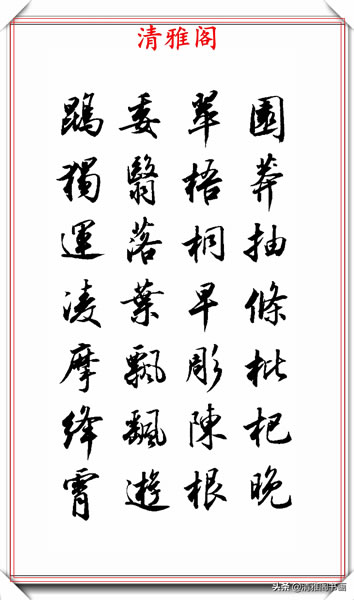 清雅阁
園莽抽條枇杷晚
翠梧桐早彫陳根
委翳落葉飄颻遊
鵾獨運凌摩絳霄
头条 @清雅阁书画